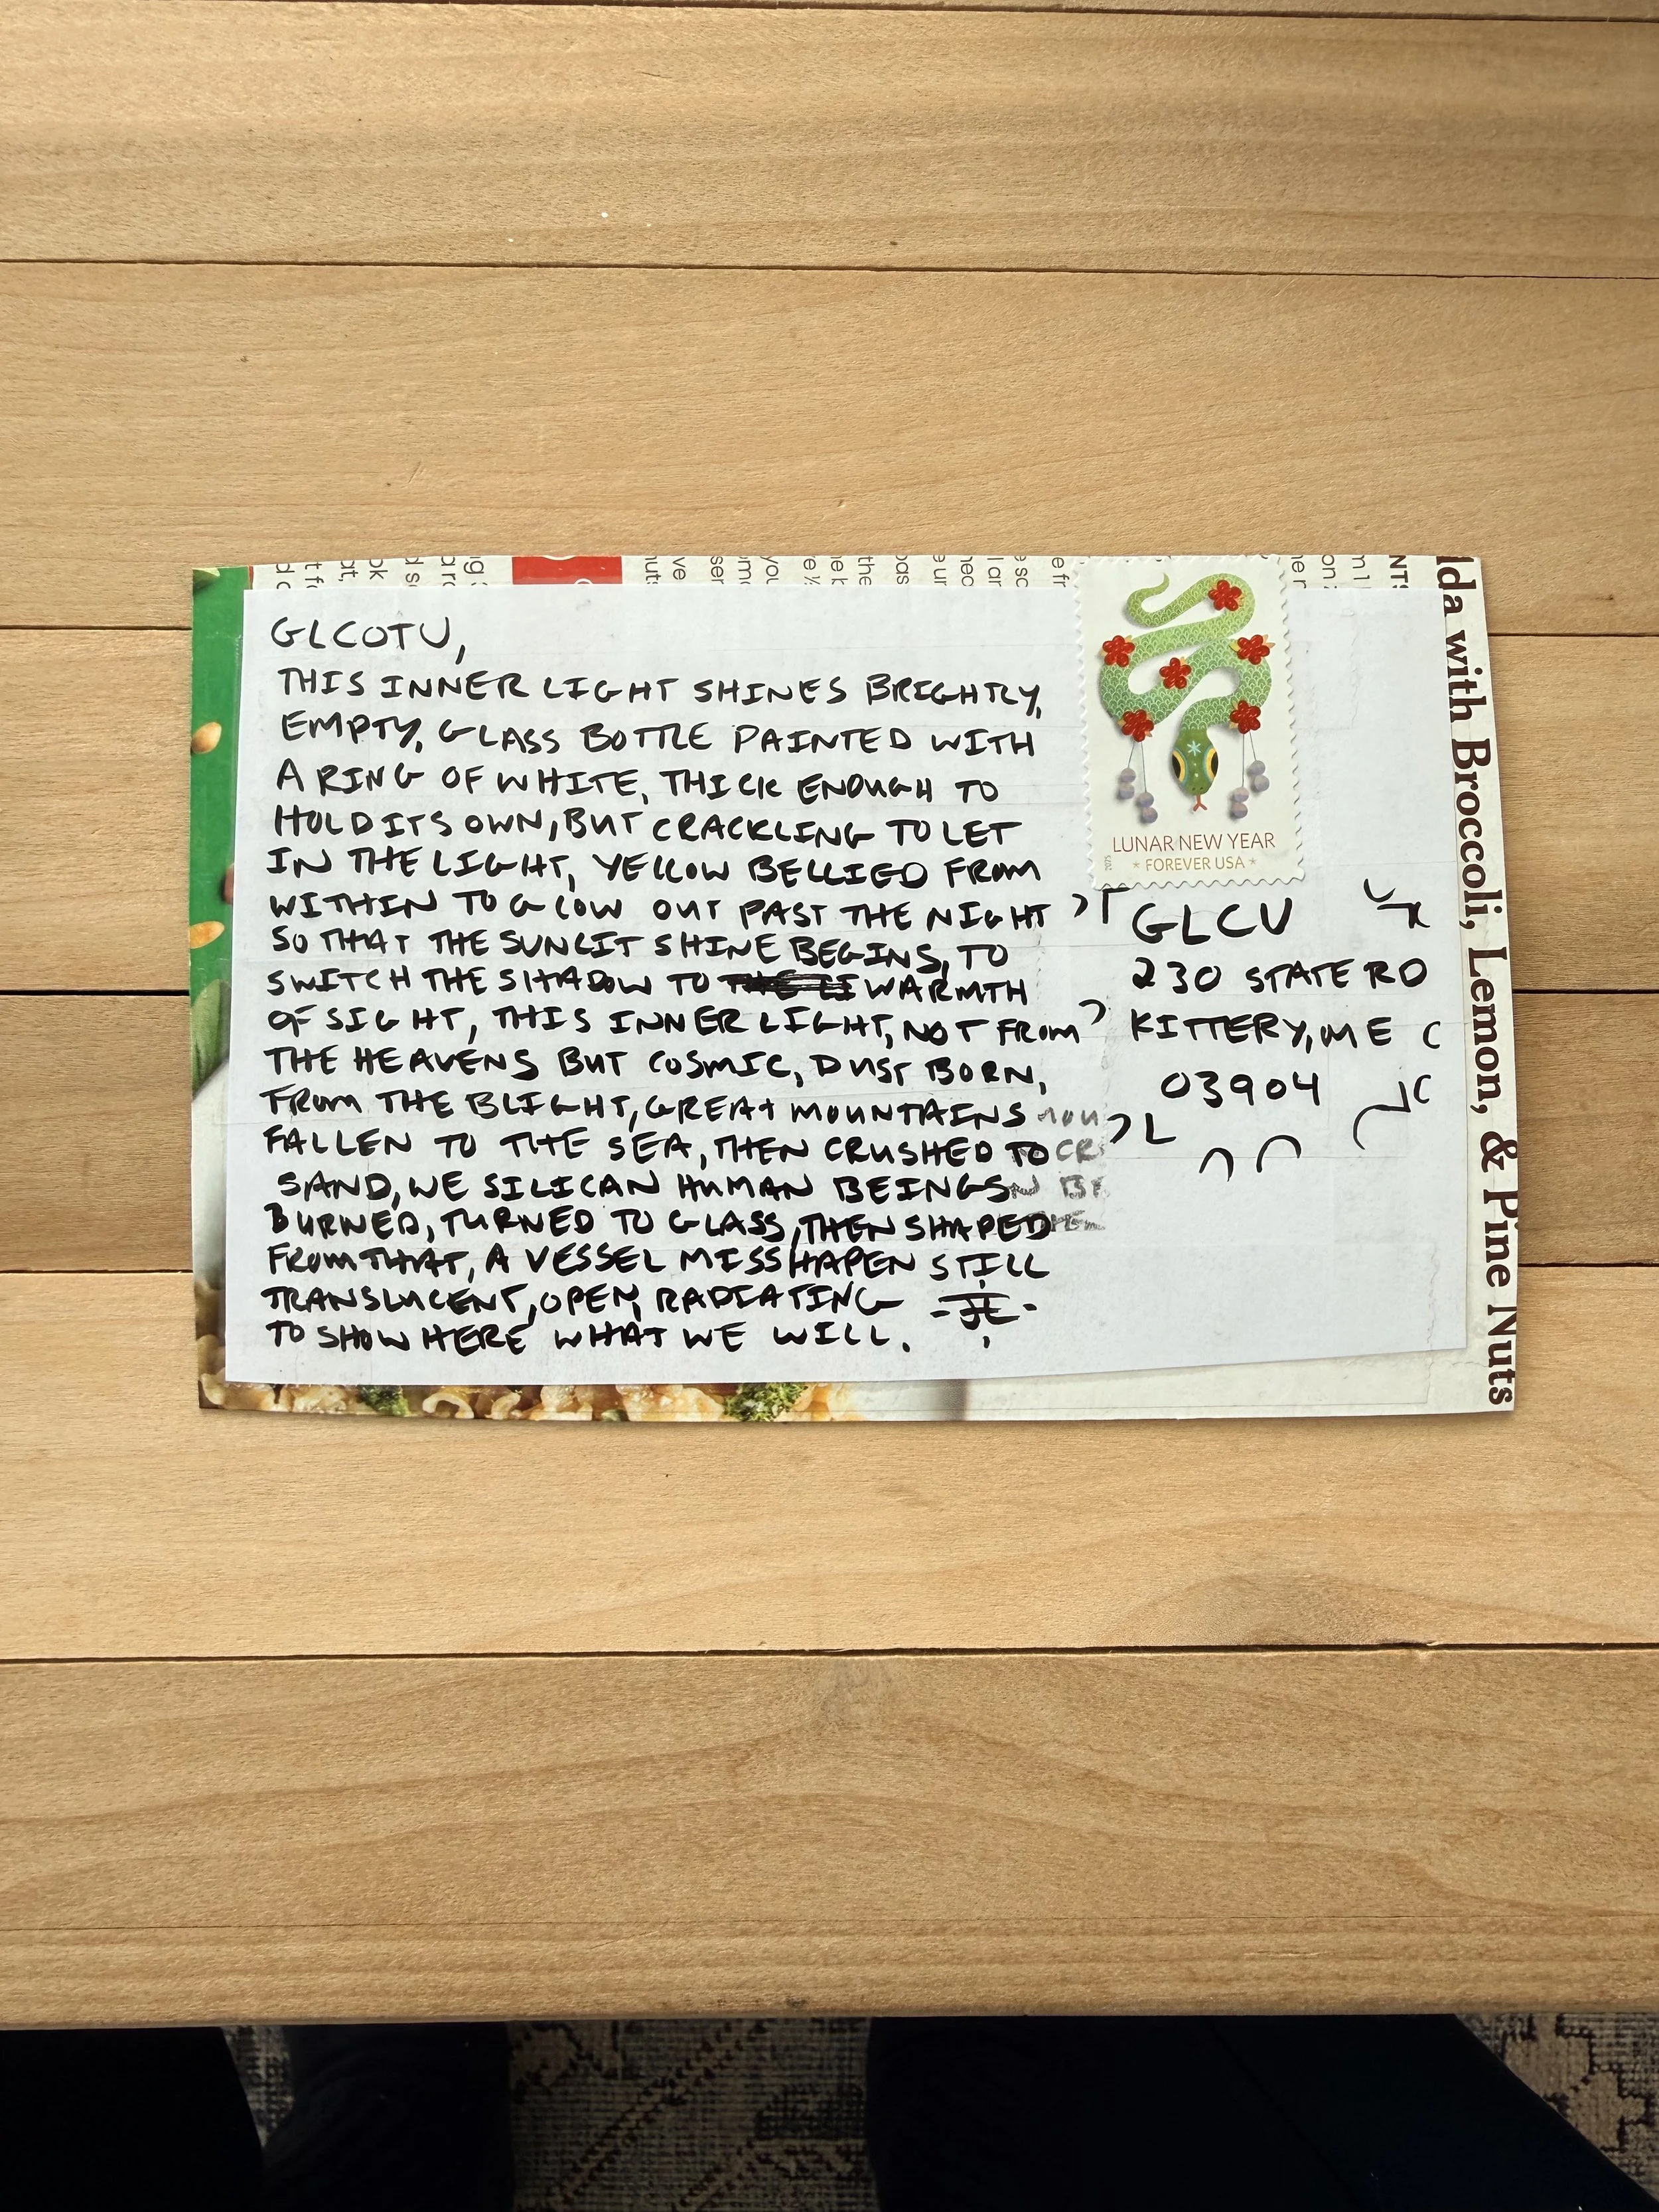 GLCOTU,
THIS INNER LIGHT SHINES BRIGHTLY,
EMPTY, GLASS BOTTLE PAINTED WITH
A RING OF WHITE, THICK ENOUGH TO
HOLD ITS OWN, BUT CRACKLING TO LET
IN THE LIGHT, YELLOW BELLIED FROM
WITHIN TO GLOW OUT PAST THE NIGHT
SO THAT THE SUNLIT SHINE BEGINS, TO
SWITCH THE SHADOW TO WARMTH
OF SIGHT, THIS INNER LIGHT, NOT FROM
THE HEAVENS BUT COSMIC, DUST BORN,
FROM THE BLIGHT, GREAT MOUNTAINS
FALLEN TO THE SEA, THEN CRUSHED TO
SAND, WE SILICAN HUMAN BEINGS
BURNED, TURNED TO GLASS, THEN SHAPED
FROM THAT, A VESSEL MISSHAPEN STILL
TRANSLUCENT, OPEN, RADIATING
TO SHOW HERE WHAT WE WILL.
LUNAR NEW YEAR
* FOREVER USA *
2025
GLCU
230 STATE RD
KITTERY, ME
03904
lda with Broccoli, Lemon, & Pine Nuts